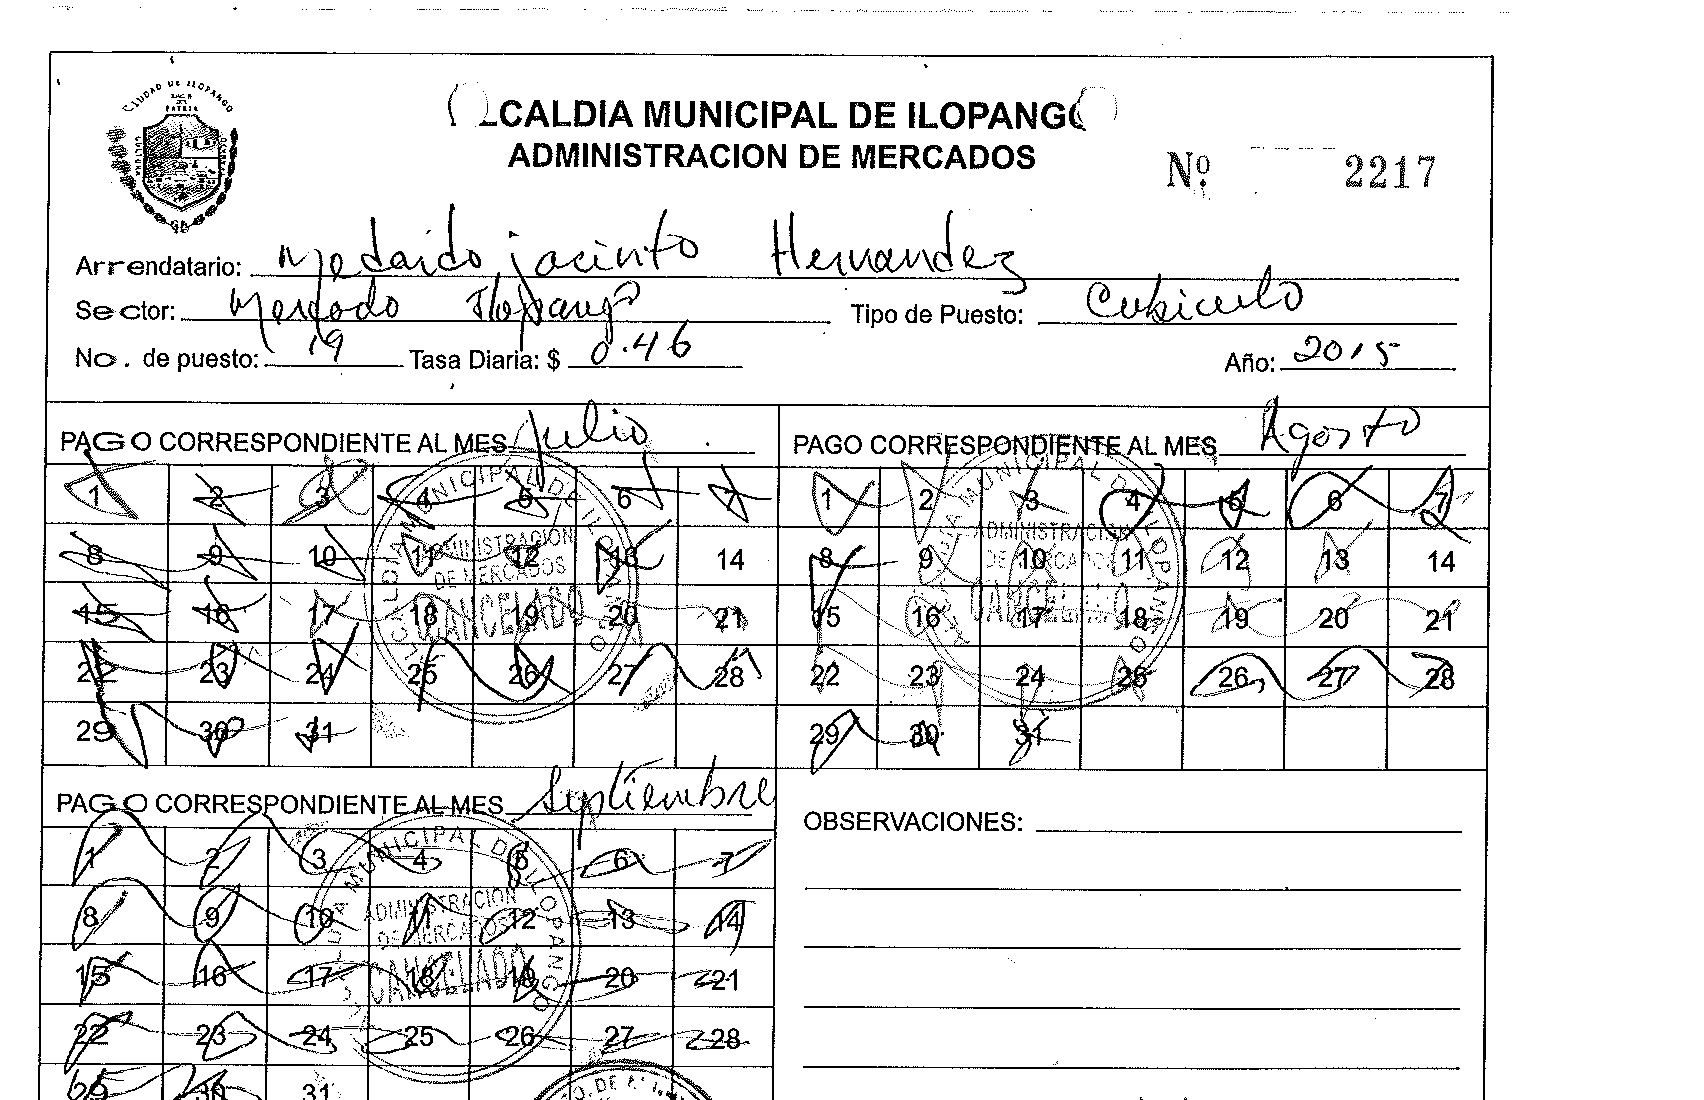 CIUDAD DE ILOPANGO
PATRIA
CALDIA MUNICIPAL DE ILOPANGO
ADMINISTRACION DE MERCADOS
Nº 2217
Arrendatario: Medardo jacinto Hernandez
Sector: Mercado Ilopango Tipo de Puesto: Cubiculo
No. de puesto: 19 Tasa Diaria: $ 0.46 Año: 2015
PAGO CORRESPONDIENTE AL MES Julio
1 2 3 4 5 6 7
8 9 10 11 12 13 14
15 16 17 18 19 20 21
22 23 24 25 26 27 28
29 30 31
ALCALDIA MUNICIPAL DE ILOPANGO
ADMINISTRACION
DE MERCADOS
CANCELADO
PAGO CORRESPONDIENTE AL MES Agosto
1 2 3 4 5 6 7
8 9 10 11 12 13 14
15 16 17 18 19 20 21
22 23 24 25 26 27 28
29 30 31
ALCALDIA MUNICIPAL DE ILOPANGO
ADMINISTRACION
DE MERCADOS
CANCELADO
PAGO CORRESPONDIENTE AL MES Septiembre
1 2 3 4 5 6 7
8 9 10 11 12 13 14
15 16 17 18 19 20 21
22 23 24 25 26 27 28
29 30 31
ALCALDIA MUNICIPAL DE ILOPANGO
ADMINISTRACION
DE MERCADOS
CANCELADO
OBSERVACIONES: